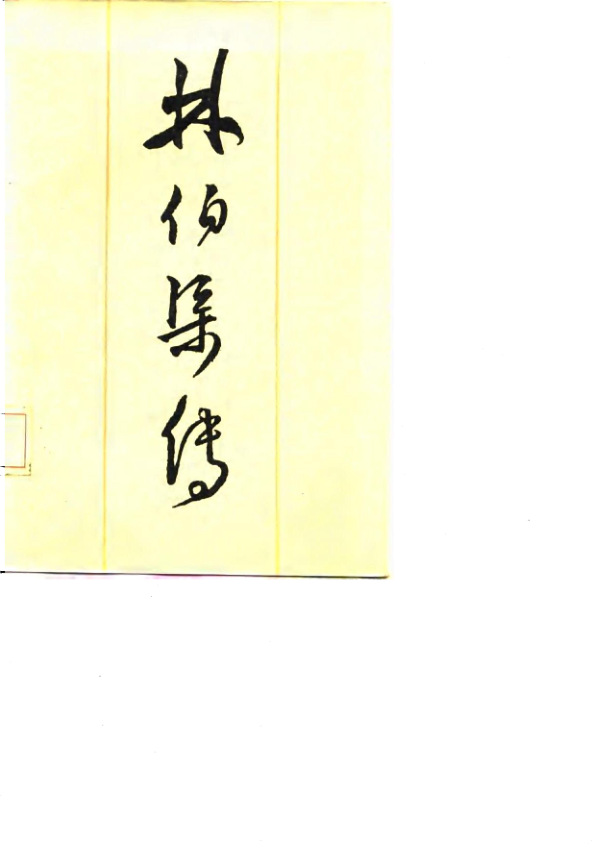 林伯渠传